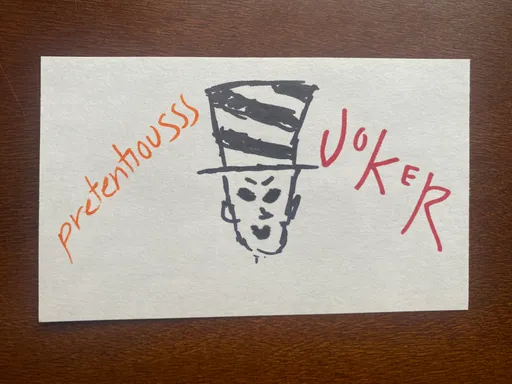 pretentiousss
JOKER